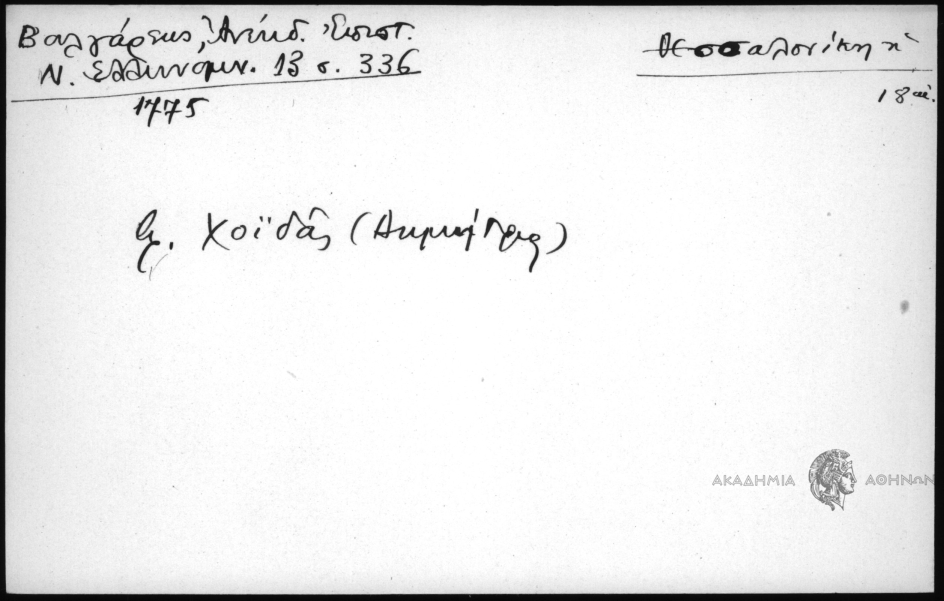 Βουλγάρεως, Ἀνέκδ. Ἐπιστ.
Ν. Ἑλληνομν. 13 σ. 336
Θεσσαλονίκη
18 αἰ.
1775
Χοϊδᾶς (Δημήτριος)
ΑΚΑΔΗΜΙΑ ΑΘΗΝΩΝ